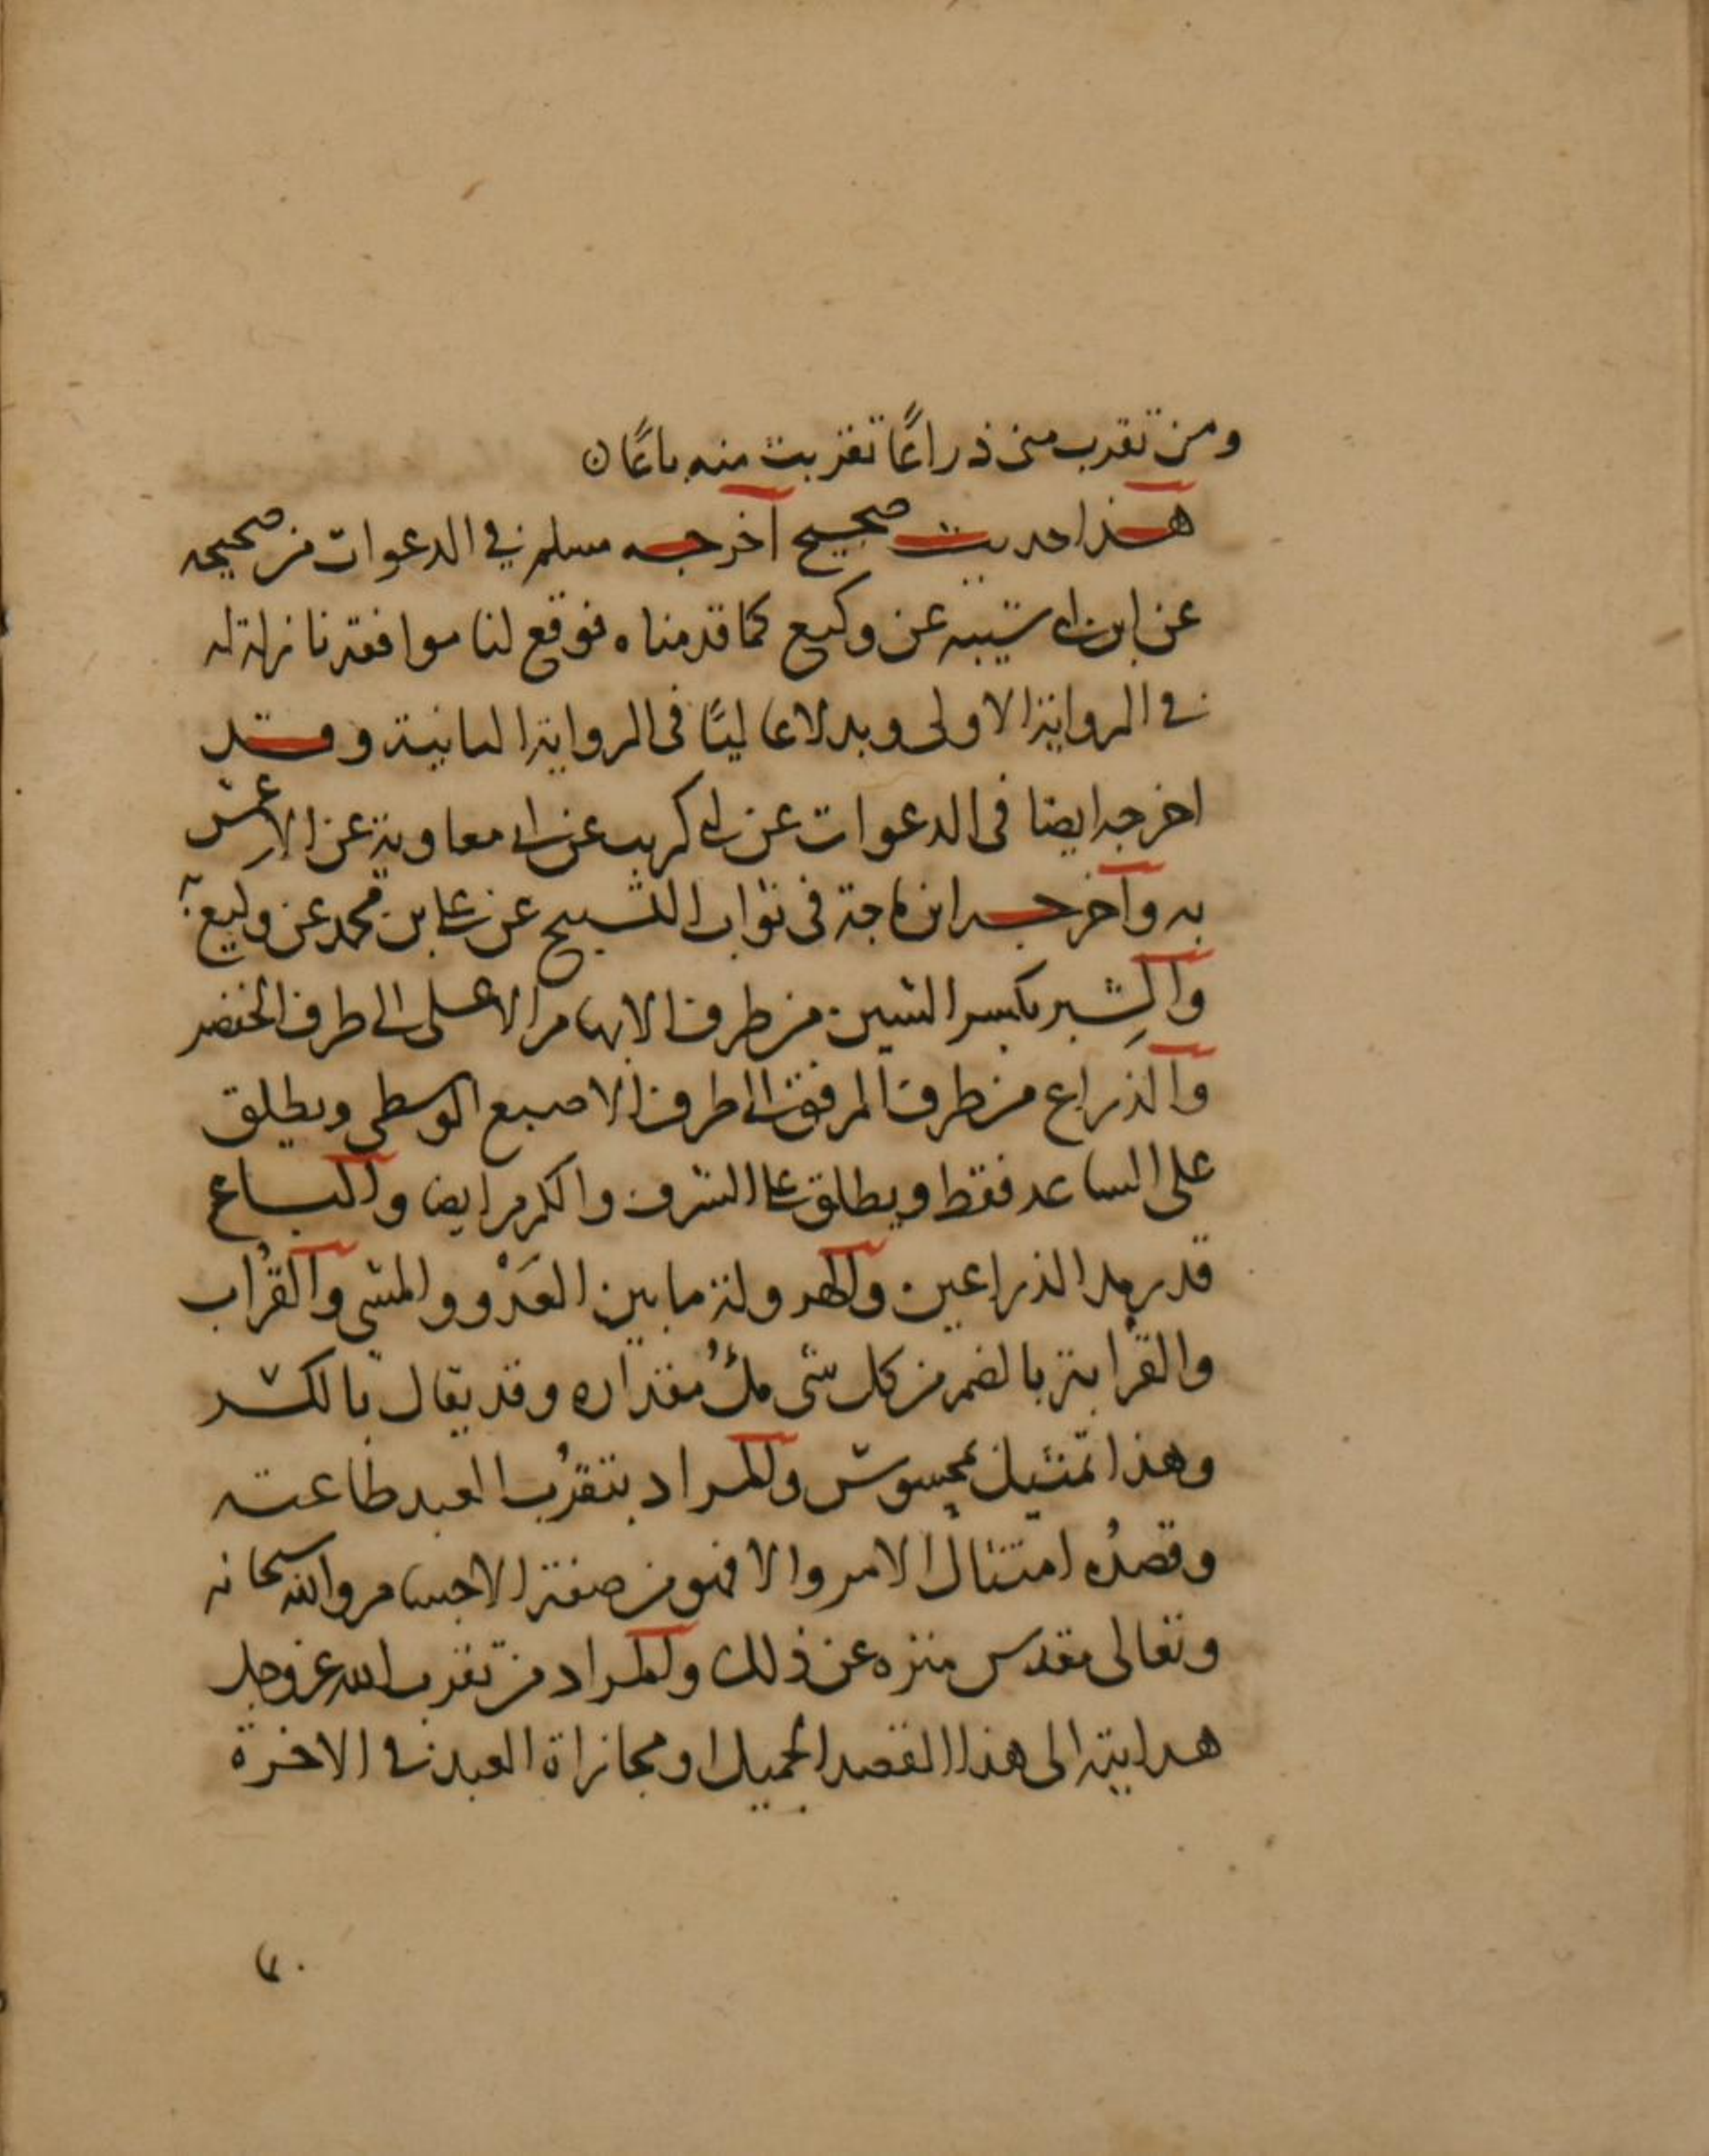 ومن تقرب منى ذراعًا تقربت منه باعًا ن
هذا حديث صحيح أخرجه مسلم في الدعوات من صحيحه
عن ابن ابى شيبه عن وكيع كما قدمناه فوقع لنا موافقة نازلة له
في الرواية الاولى وبدلا عاليًا فى الرواية الثانية وقد
اخرجه ايضا فى الدعوات عن ابى كريب عن ابى معاوية عن الاعمش
به وأخرجه ابن ماجة فى ثواب التسبيح عن على بن محمد عن وكيع به
والشِبر بكسر الشين من طرف الابهام الاعلى الى طرف الخنصر
والذراع من طرف المرفق الى طرف الاصبع الوسطى ويطلق
على الساعد فقط ويطلق على الشرف والكرم ايضا والباع
قدر مد الذراعين والهرولة ما بين العَدْو والمشى والقُراب
والقرابة بالضم من كل شى ملُ مقداره وقد يقال بالكسر
وهذا تمثيل بمحسوس والمراد بتقرُب العبد طاعته
وقصدُه امتثال الامر والا فهو من صفة الاجسام والله سبحانه
وتعالى مقدس منزه عن ذلك والمراد من تقرب الله عز وجل
هدايته الى هذا القصد الجميل او مجازاة العبد في الاخرة